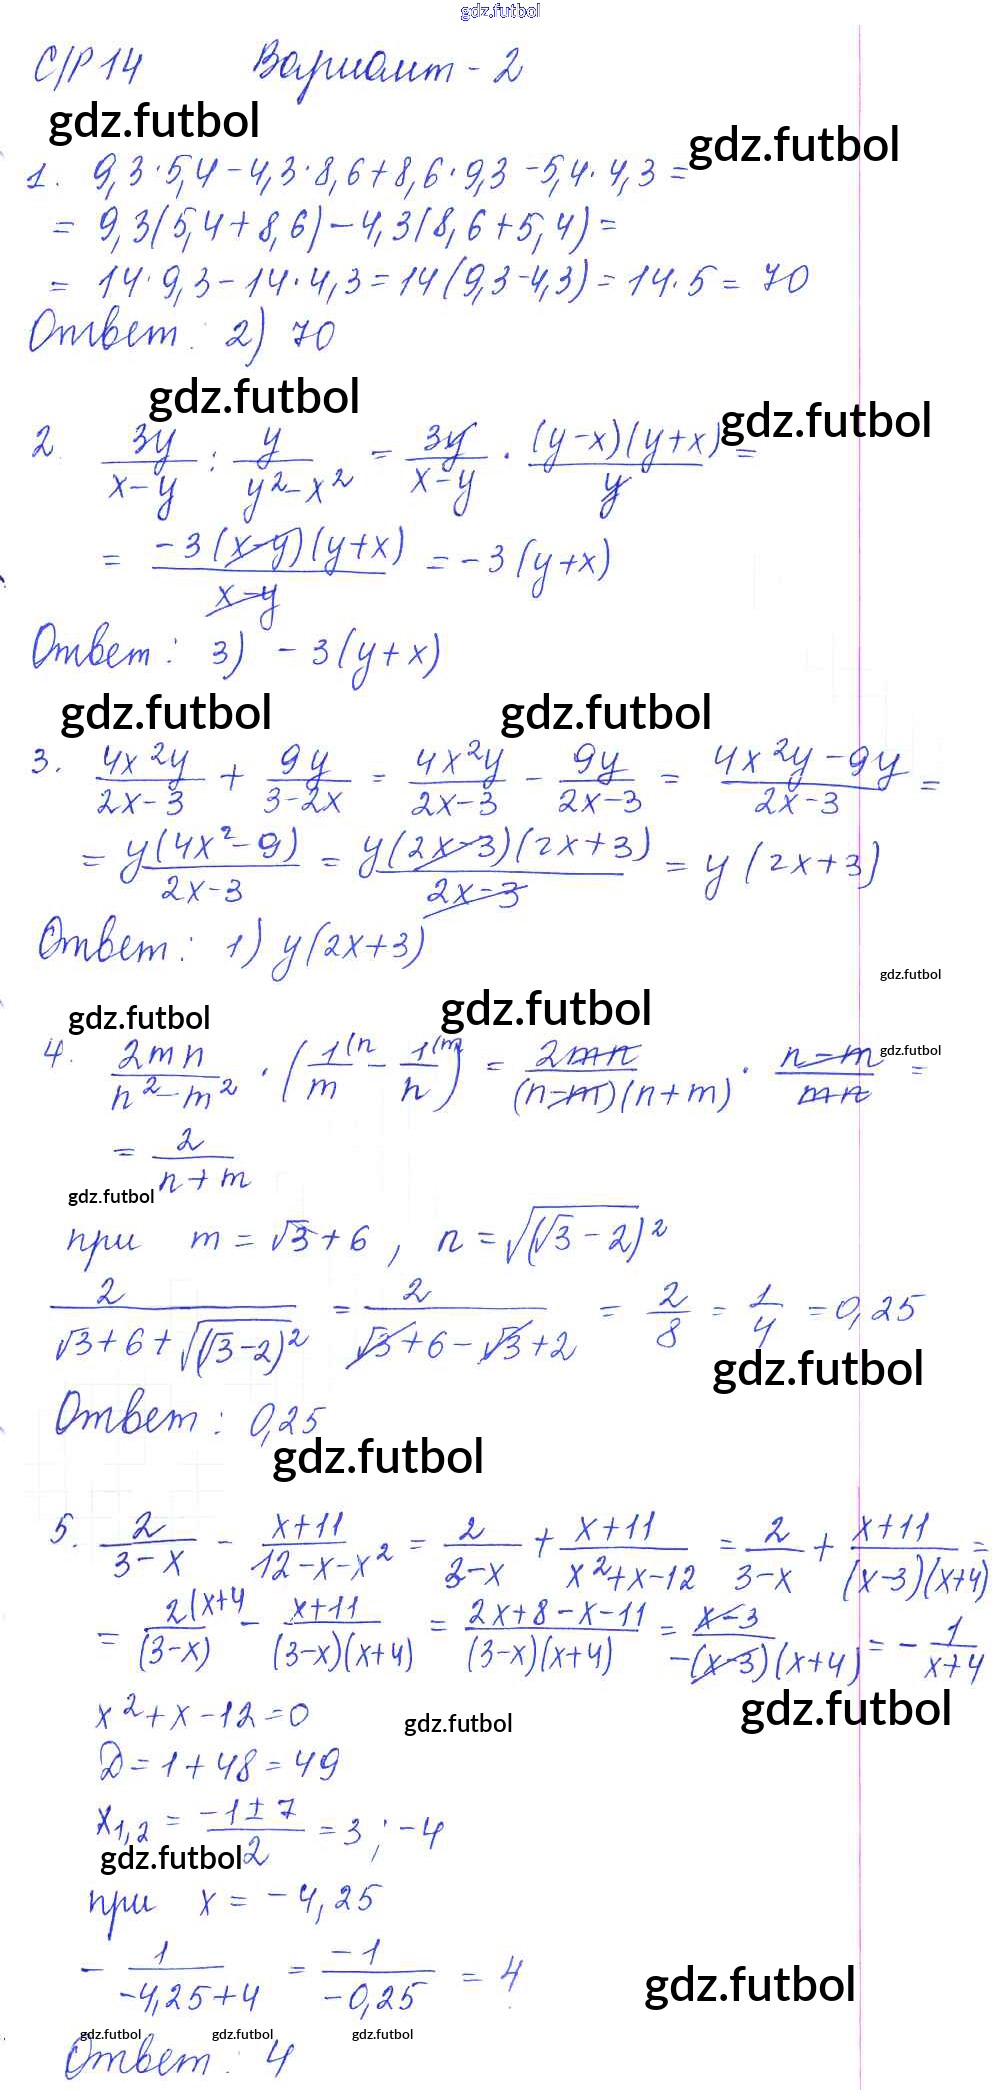 gdz.futbol
С/Р 14 Вариант - 2
gdz.futbol gdz.futbol
1. 9,3 · 5,4 - 4,3 · 8,6 + 8,6 · 9,3 - 5,4 · 4,3 =
= 9,3(5,4 + 8,6) - 4,3(8,6 + 5,4) =
= 14 · 9,3 - 14 · 4,3 = 14(9,3 - 4,3) = 14 · 5 = 70
Ответ: 2) 70
gdz.futbol gdz.futbol
2. 3y/(x-y) : y/(y²-x²) = 3y/(x-y) · (y-x)(y+x)/y =
= -3(x-y)(y+x)/(x-y) = -3(y+x)
Ответ: 3) -3(y+x)
gdz.futbol gdz.futbol
3. 4x²y/(2x-3) + 9y/(3-2x) = 4x²y/(2x-3) - 9y/(2x-3) = (4x²y-9y)/(2x-3) =
= y(4x²-9)/(2x-3) = y(2x-3)(2x+3)/(2x-3) = y(2x+3)
Ответ: 1) y(2x+3)
gdz.futbol
gdz.futbol gdz.futbol
4. 2mn/(n²-m²) · (1(n/m - 1(m/n) = 2mn/((n-m)(n+m)) · (n-m)/mn =
gdz.futbol
= 2/(n+m)
gdz.futbol
при m = √3+6, n = √((√3-2)²)
2/(√3+6+√((√3-2)²)) = 2/(√3+6-√3+2) = 2/8 = 1/4 = 0,25
gdz.futbol
Ответ: 0,25
gdz.futbol
5. 2/(3-x) - (x+11)/(12-x-x²) = 2/(3-x) + (x+11)/(x²+x-12) = 2/(3-x) + (x+11)/((x-3)(x+4)) =
= 2(x+4/(3-x) - (x+11)/((3-x)(x+4)) = (2x+8-x-11)/((3-x)(x+4)) = (x-3)/(-(x-3)(x+4)) = -1/(x+4)
gdz.futbol
x²+x-12=0
gdz.futbol
D=1+48=49
x1,2 = (-1±7)/2 = 3; -4
gdz.futbol
при x = -4,25
-1/(-4,25+4) = -1/(-0,25) = 4
gdz.futbol
gdz.futbol gdz.futbol gdz.futbol
Ответ: 4